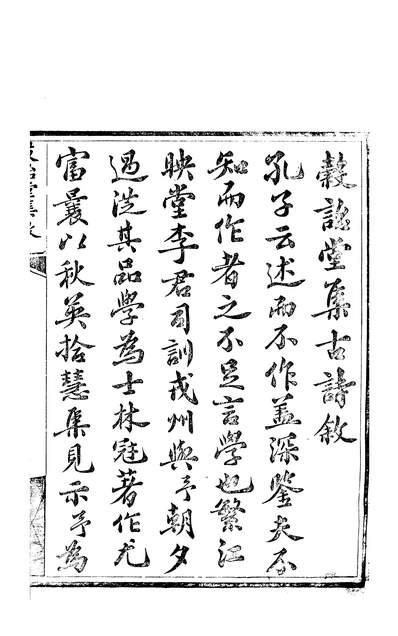 穀詒堂集古詩敘
孔子云述而不作蓋深鑒夫不
知而作者之不足言學也繁江
映堂李君司訓戎州與予朝夕
過從其品學為士林冠著作尤
富曩以秋英拾慧集見示予為
詒堂集敘